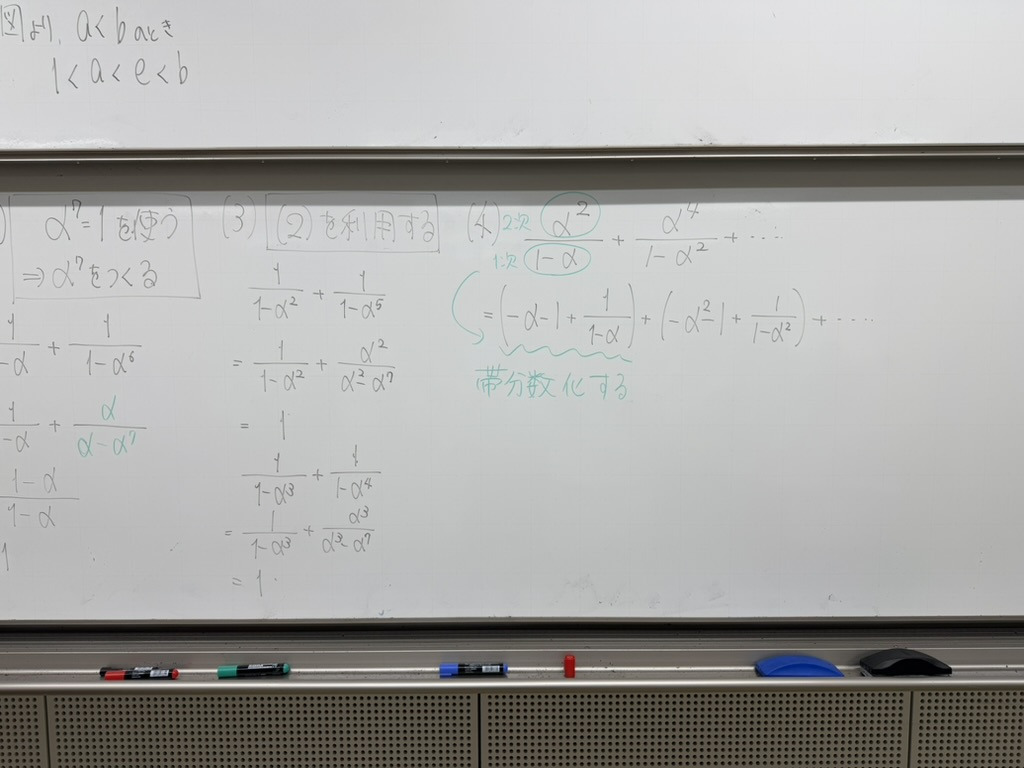 図より, a<b のとき
1<a<e<b
) α⁷=1を使う
⇒α⁷をつくる
1/(-α) + 1/(1-α⁶)
1/(-α) + α/(α-α⁷)
(1-α)/(1-α)
1
(3) (2)を利用する
1/(1-α²) + 1/(1-α⁵)
= 1/(1-α²) + α²/(α²-α⁷)
= 1
1/(1-α³) + 1/(1-α⁴)
= 1/(1-α³) + α³/(α³-α⁷)
= 1.
(4) 2次 α²/(1-α) + α⁴/(1-α²) + ....
1次
= (-α-1 + 1/(1-α)) + (-α²-1 + 1/(1-α²)) + ....
帯分数化する